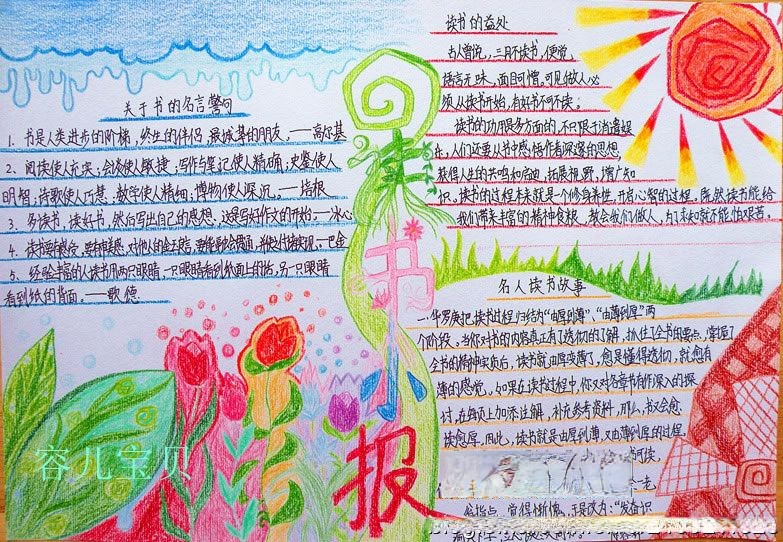 关于书的名言警句
1、书是人类进步的阶梯，终生的伴侣，最诚挚的朋友，——高尔基
2、阅读使人充实；会谈使人敏捷；写作与笔记使人精确；史鉴使人
明智；诗歌使人巧慧；数学使人精细；博物使人深沉。——培根
3、多读书，读好书，然后写出自己的感想，这是写好作文的开始。——冰心
5、经验丰富的人读书用两只眼睛，一只眼睛看到纸面上的话，另一只眼睛
看到纸的背面。——歌德
读书小报
容儿宝贝
读书的益处
古人曾说，三日不读书，便觉
语言无味，面目可憎。可见做人必
须从读书开始，有好书不可不读。
读书的功用是多方面的，不只限于消遣娱
乐，人们还要从书中感悟作者深邃的思想，
获得人生的共鸣和启迪，拓展视野，增广知
识。读书的过程本来就是个修身养性，开启心智的过程。既然读书能给
我们带来丰富的精神食粮，教会我们做人，为了求知就不能怕艰苦。
名人读书故事
一、华罗庚把读书过程归结为“由厚到薄”、“由薄到厚”两
个阶段。当你对书的内容真正有了透彻的了解，抓住了全书的要点，掌握了
全书的精神实质后，读书就由厚变薄了，愈是懂得透彻，就愈有
薄的感觉。如果在读书过程中，你又对各章节有作深入的探
讨，在每页上加添注解，补充参考资料，那么，书又会愈
读愈厚。因此，读书就是由厚到薄，又由薄到厚的过程。
可读，
一老，
指点，觉得惭愧，于是改为：“发奋识